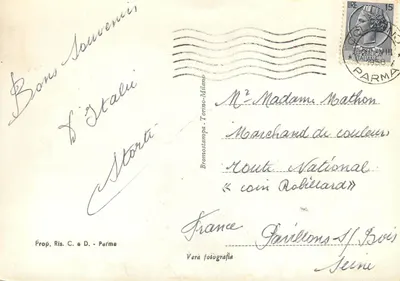 Bons Souvenirs
D'Italie
Storti
Prop. Ris. C. e D. - Parma
Bromostampa - Torino-Milano
Vera fotografia
15
PARMA
Mr Madame Mathon
Marchand de couleurs
Route National
"coin Robillard"
Pavillons-s/Bois
Seine
France